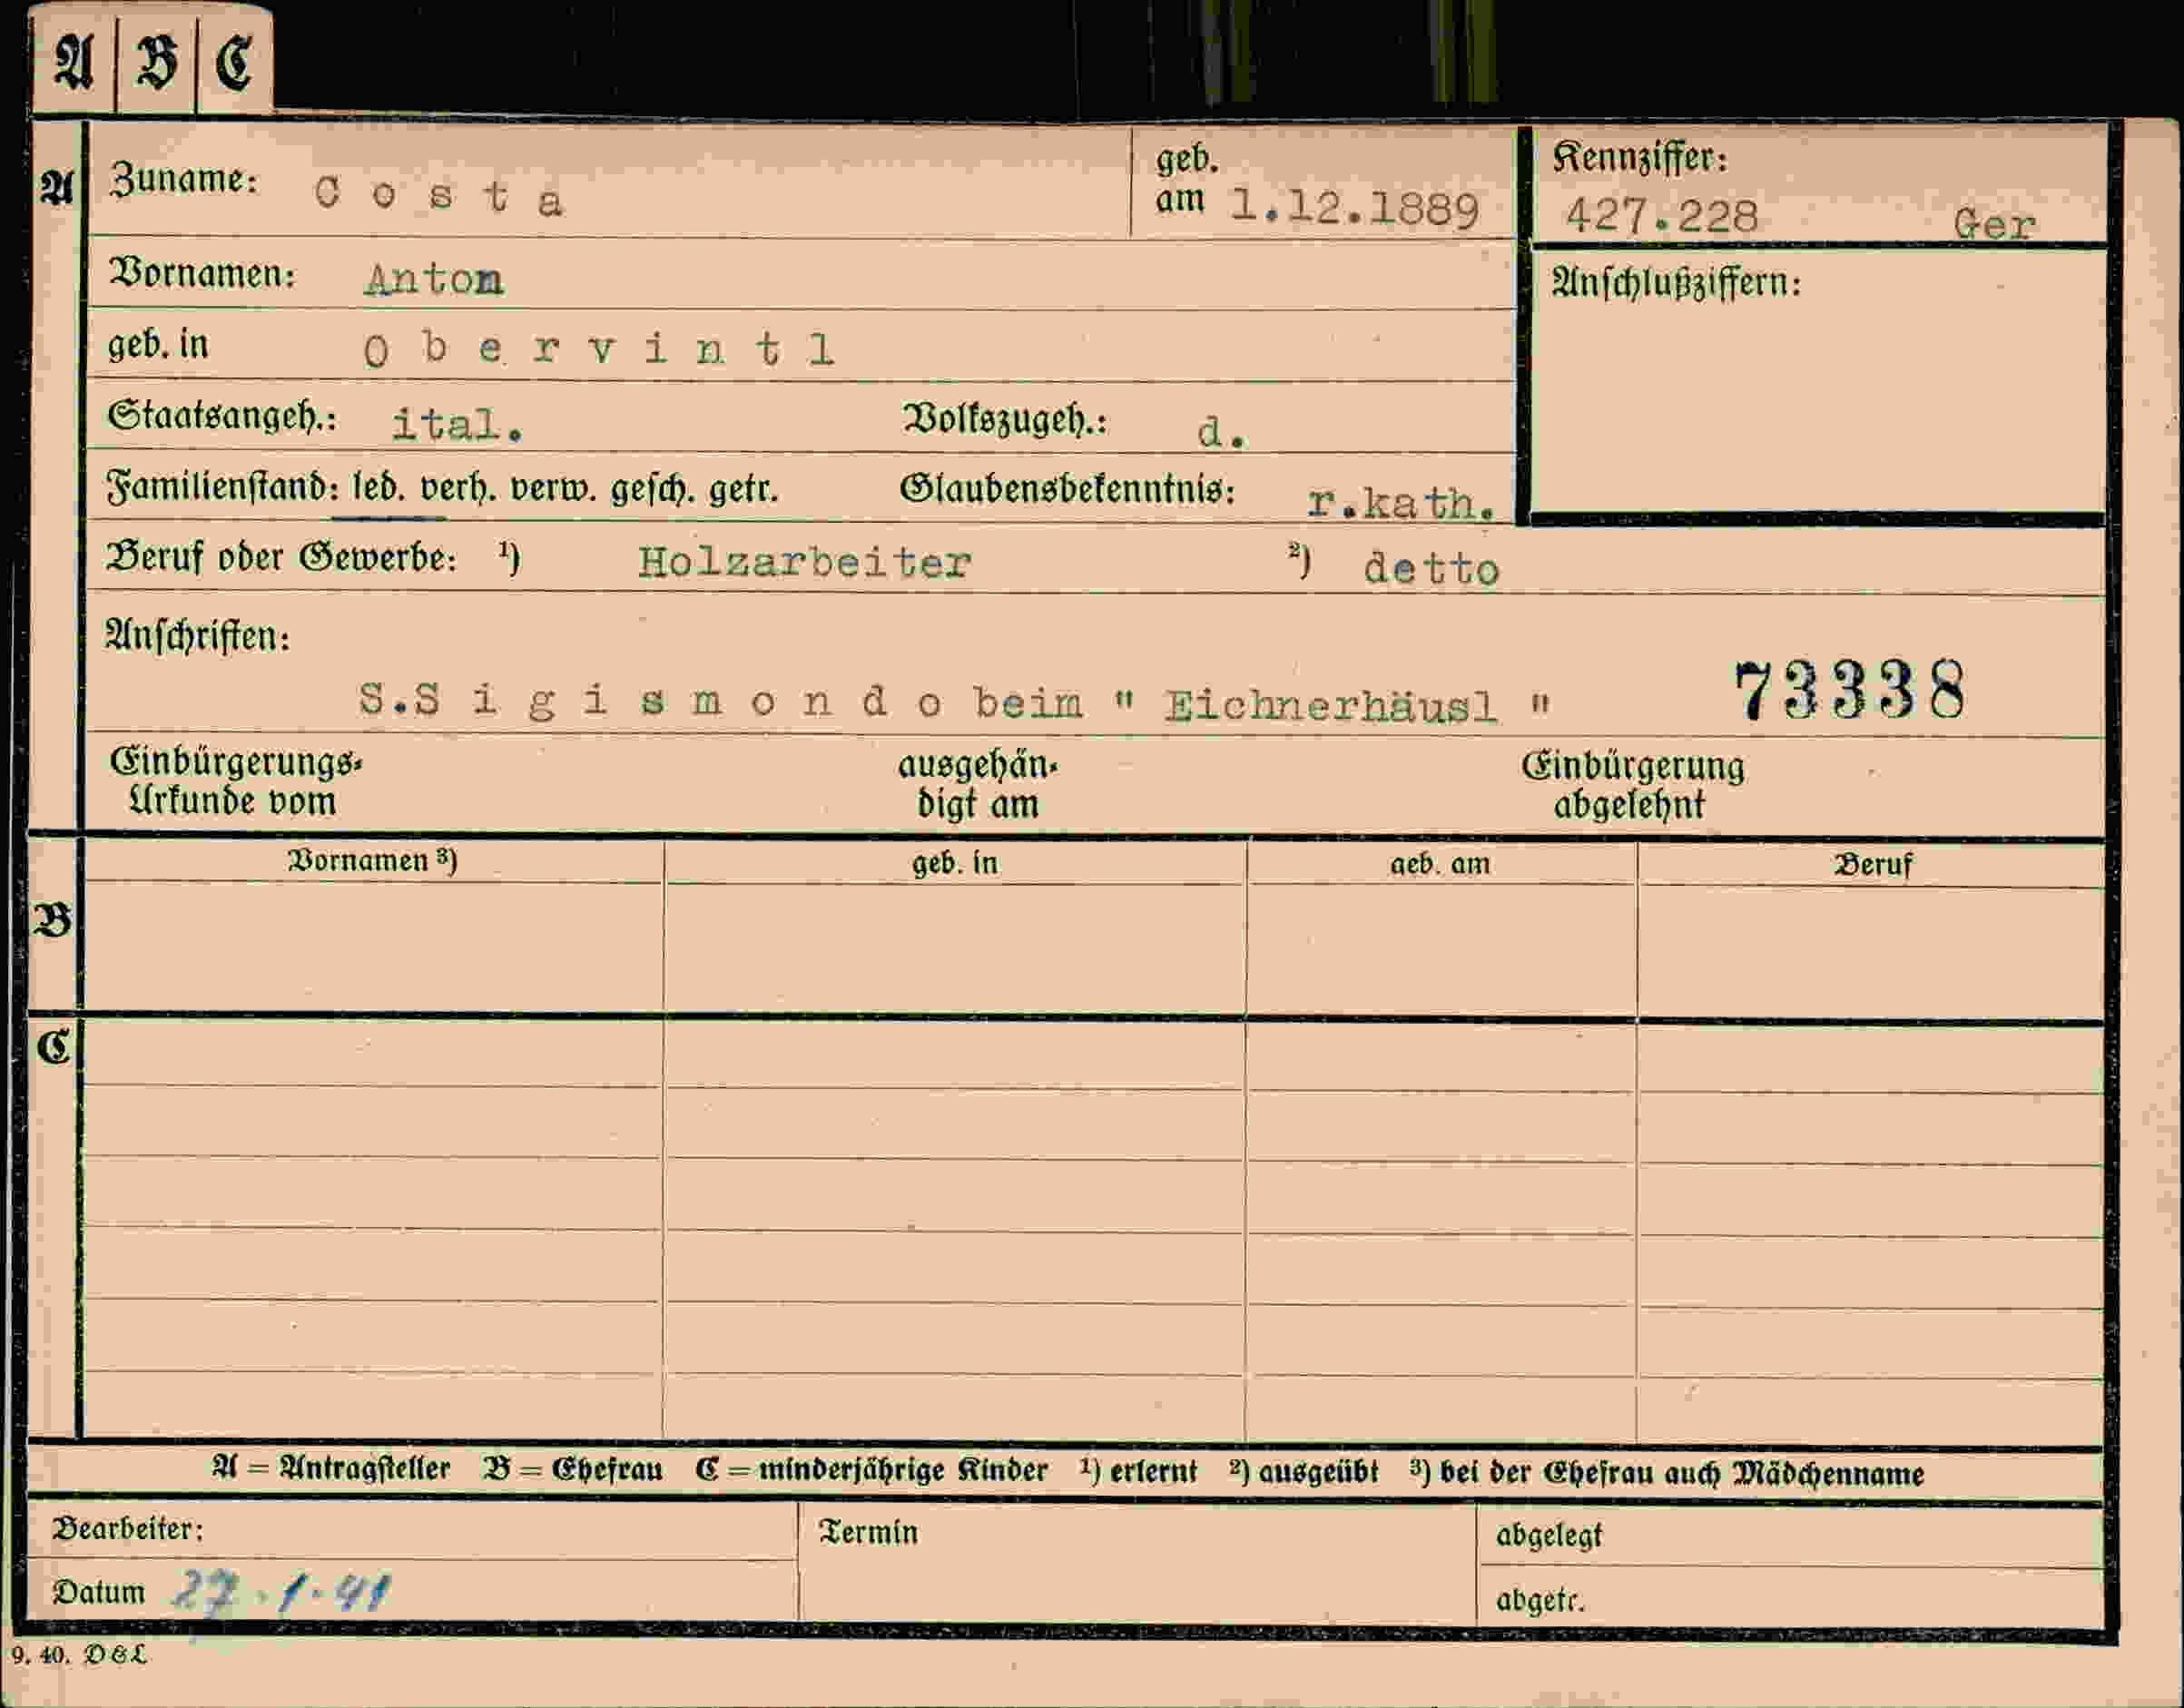 A B C
A
Zuname: C o s t a
geb. am 1.12.1889
Kennziffer: 427.228 Ger
Vornamen: Anton
Anschlußziffern:
geb. in O b e r v i n t l
Staatsangeh.: ital. Volkszugeh.: d.
Familienstand: led. verh. verw. gesch. getr. Glaubensbekenntnis: r.kath.
Beruf oder Gewerbe: ¹) Holzarbeiter ²) detto
Anschriften:
S.S i g i s m o n d o beim " Eichnerhäusl " 73338
Einbürgerungs- ausgehän- Einbürgerung
Urkunde vom digt am abgelehnt
Vornamen ³) geb. in geb. am Beruf
B
C
A = Antragsteller B = Ehefrau C = minderjährige Kinder ¹) erlernt ²) ausgeübt ³) bei der Ehefrau auch Mädchenname
Bearbeiter: Termin abgelegt
Datum 27.1.41 abgetr.
9. 40. D&L